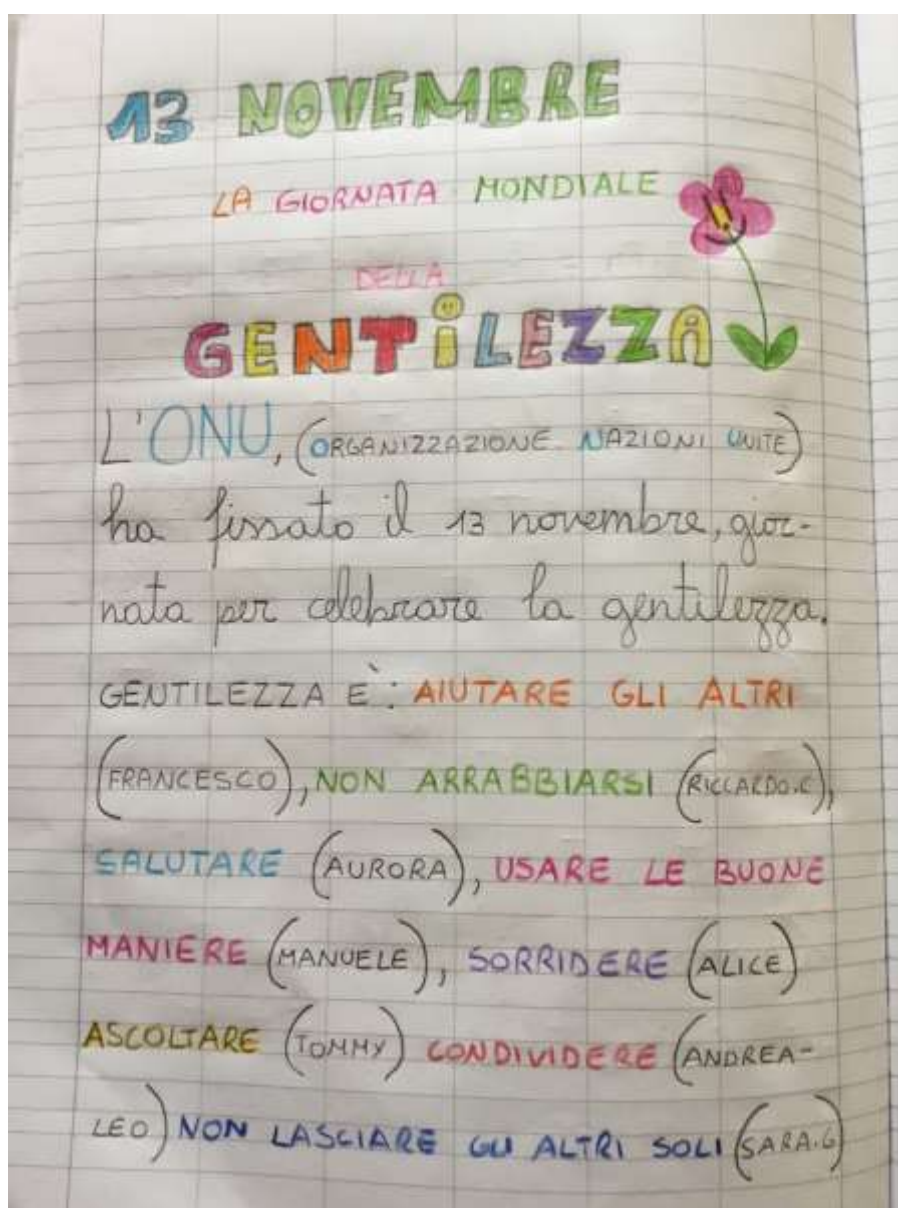 13 NOVEMBRE
LA GIORNATA MONDIALE
DELLA
GENTiLEZZA
L'ONU, (ORGANIZZAZIONE NAZIONI UNITE)
ha fissato il 13 novembre, gior-
nata per celebrare la gentilezza.
GENTILEZZA È: AIUTARE GLI ALTRI
(FRANCESCO), NON ARRABBIARSI (RICCARDO.C),
SALUTARE (AURORA), USARE LE BUONE
MANIERE (MANUELE), SORRIDERE (ALICE)
ASCOLTARE (TOMMY) CONDIVIDERE (ANDREA-
LEO) NON LASCIARE GLI ALTRI SOLI (SARA.G)